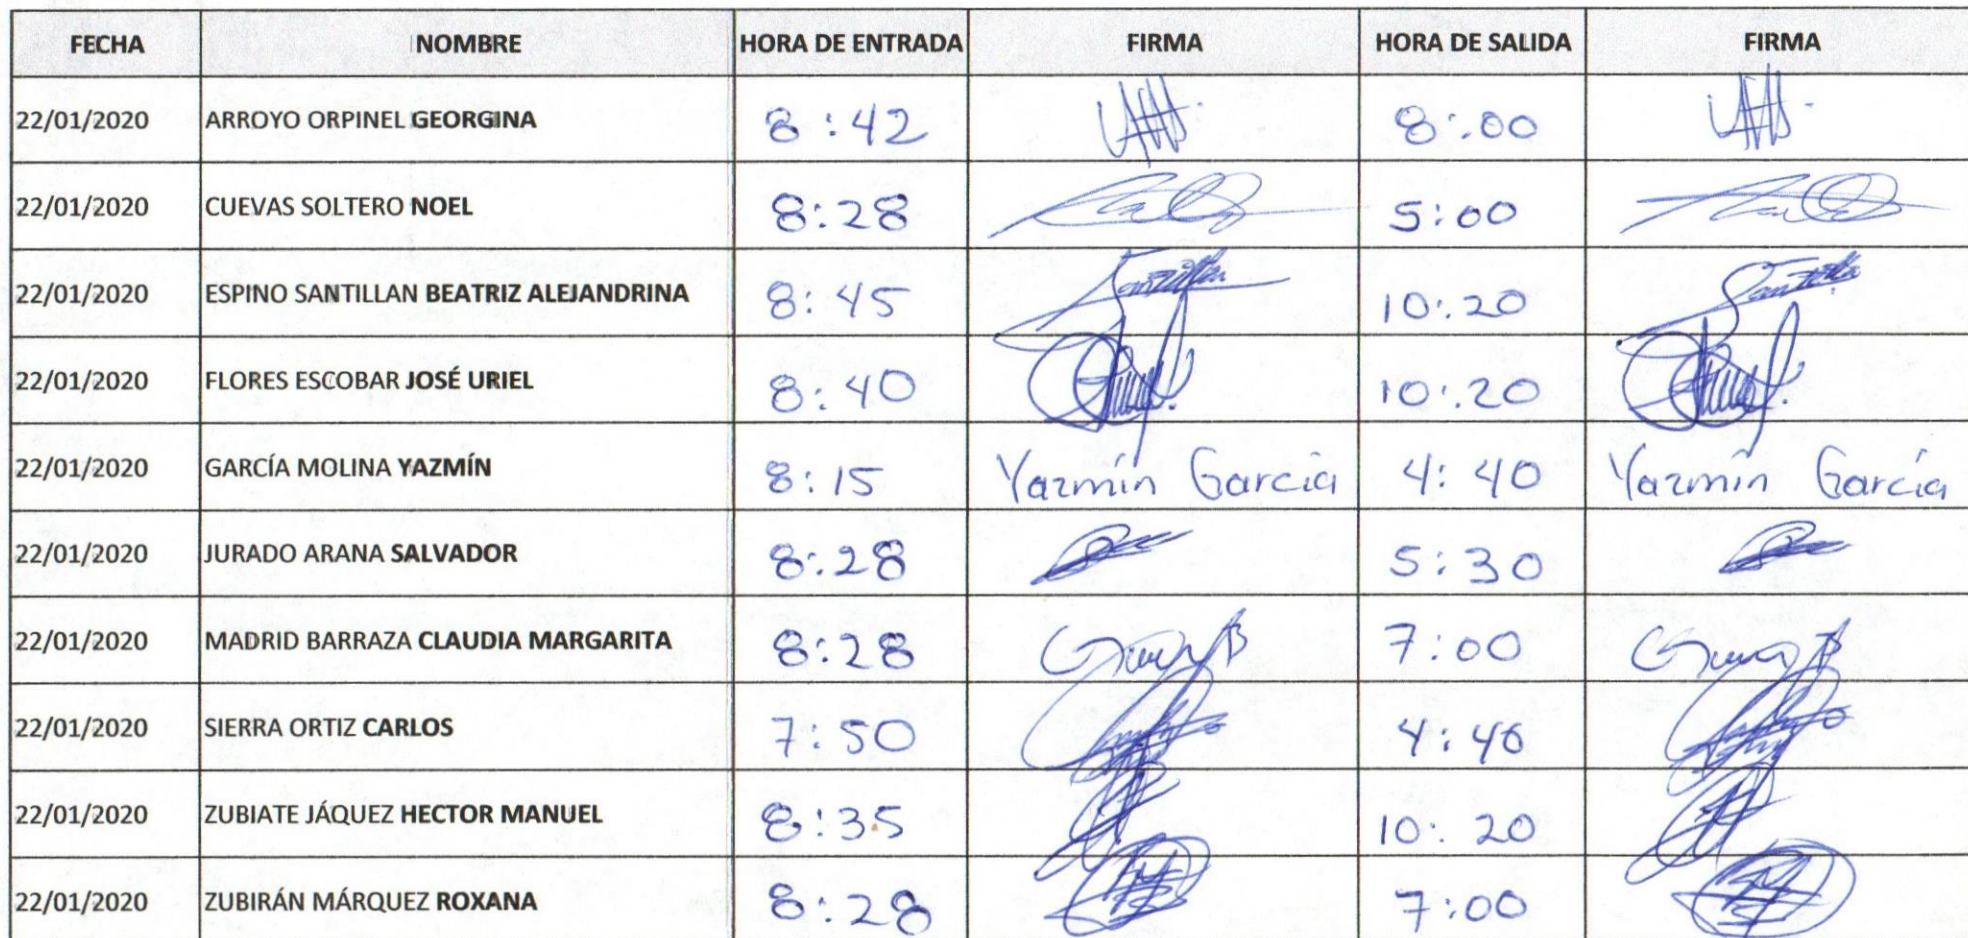 FECHA NOMBRE HORA DE ENTRADA FIRMA HORA DE SALIDA FIRMA
22/01/2020 ARROYO ORPINEL GEORGINA 8:42 8:00
22/01/2020 CUEVAS SOLTERO NOEL 8:28 5:00
22/01/2020 ESPINO SANTILLAN BEATRIZ ALEJANDRINA 8:45 10:20
22/01/2020 FLORES ESCOBAR JOSÉ URIEL 8:40 10:20
22/01/2020 GARCÍA MOLINA YAZMÍN 8:15 Yazmín García 4:40 Yazmín García
22/01/2020 JURADO ARANA SALVADOR 8:28 5:30
22/01/2020 MADRID BARRAZA CLAUDIA MARGARITA 8:28 7:00
22/01/2020 SIERRA ORTIZ CARLOS 7:50 4:40
22/01/2020 ZUBIATE JÁQUEZ HECTOR MANUEL 8:35 10:20
22/01/2020 ZUBIRÁN MÁRQUEZ ROXANA 8:28 7:00